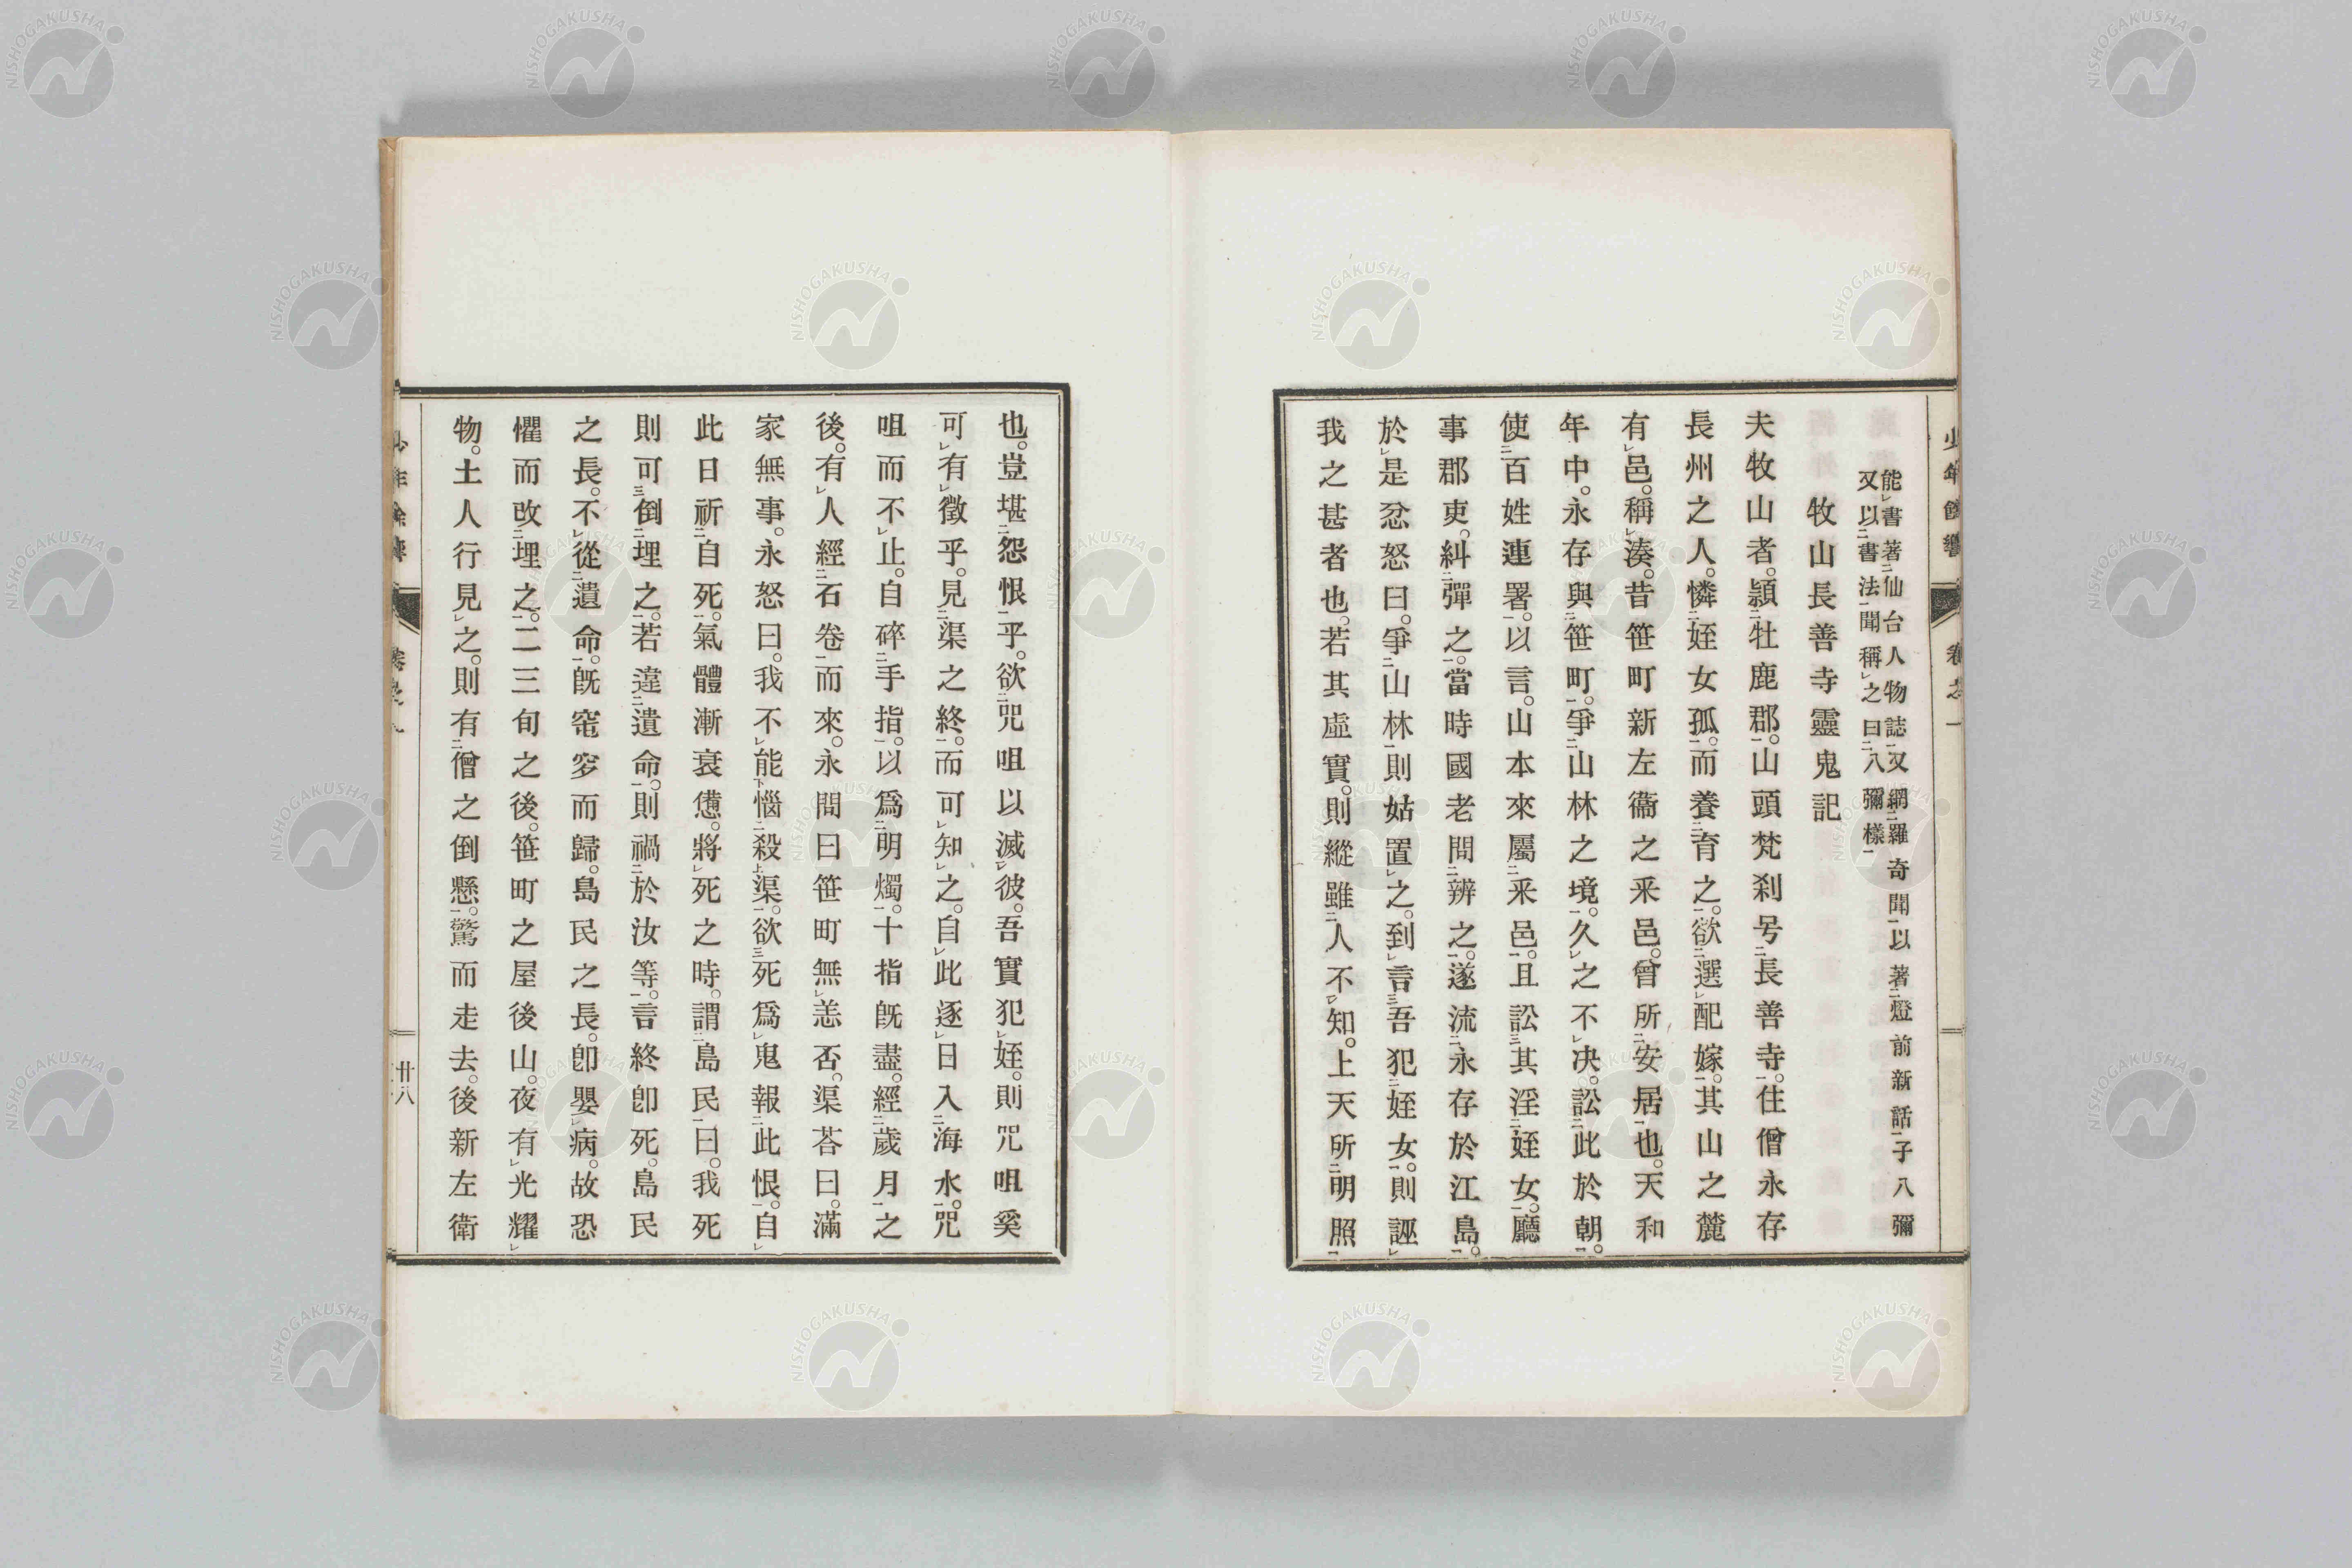 能書著仙台人物誌又網羅奇聞以著燈前新話子八彌
又以書法聞稱之曰八彌樣
牧山長善寺靈鬼記
夫牧山者。頴牡鹿郡。山頭梵刹号長善寺。住僧永存
長州之人。憐姪女孤。而養育之。欲選配嫁。其山之麓
有邑。稱湊。昔笹町新左衞之釆邑。曾所安居也。天和
年中。永存與笹町。爭山林之境。久之不决。訟此於朝。
使百姓連署。以言。山本來屬釆邑。且訟其淫姪女。廳
事郡吏。糾彈之。當時國老問辨之。遂流永存於江島。
於是忿怒曰。爭山林則姑置之。到言吾犯姪女。則誣
我之甚者也。若其虛實。則縱雖人不知。上天所明照
也。豈堪怨恨乎。欲咒咀以滅彼。吾實犯姪。則咒咀奚
可有徵乎。見渠之終。而可知之。自此逐日入海水。咒
咀而不止。自碎手指。以爲明燭。十指既盡。經歲月之
後。有人經石卷而來。永問曰笹町無恙否。渠荅曰。滿
家無事。永怒曰。我不能惱殺渠。欲死爲鬼報此恨。自
此日祈自死。氣體漸衰憊。將死之時。謂島民曰。我死
則可倒埋之。若違遺命。則禍於汝等。言終卽死。島民
之長。不從遺命。既窀穸而歸。島民之長。卽嬰病。故恐
懼而改埋之。二三旬之後。笹町之屋後山。夜有光耀
物。土人行見之。則有僧之倒懸。驚而走去。後新左衛
卷之一
廿八
NISHOGAKUSHA